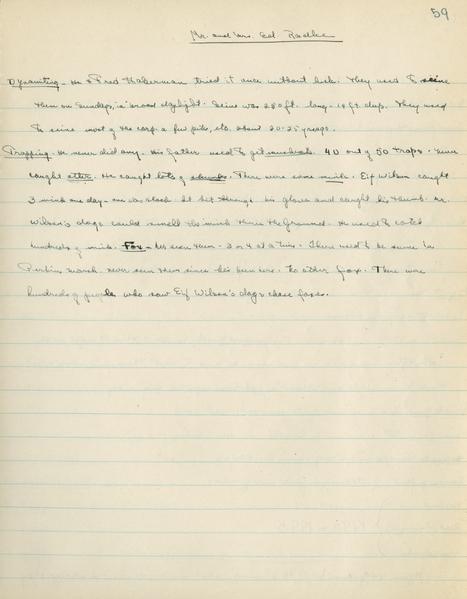 59
Mr. and Mrs. Ed. Radke
Dynamiting - He & Fred Haberman tried it once without luck. They used to seine
them on Sundays, in broad daylight. Seine was 280 ft. long - 14 ft. deep. They used
to seine most of the carp a few pike, etc. about 20-25 years.
Trapping - He never did any. His father used to get muskrats. 40 out of 50 traps. Never
caught otter. He caught lots of skunks. There were some mink. Eif Wilson caught
3 mink one day - one was alive. It bit through his glove and caught his thumb. Mr.
Wilson's dogs could smell the mink thru the ground. He used to catch
hundreds of mink. Fox - has seen them - 3 or 4 at a time. There used to be some in
Perkins marsh. Never seen them since he's been here. No other fox. There were
hundreds of people who saw Eif Wilson's dogs chase foxes.